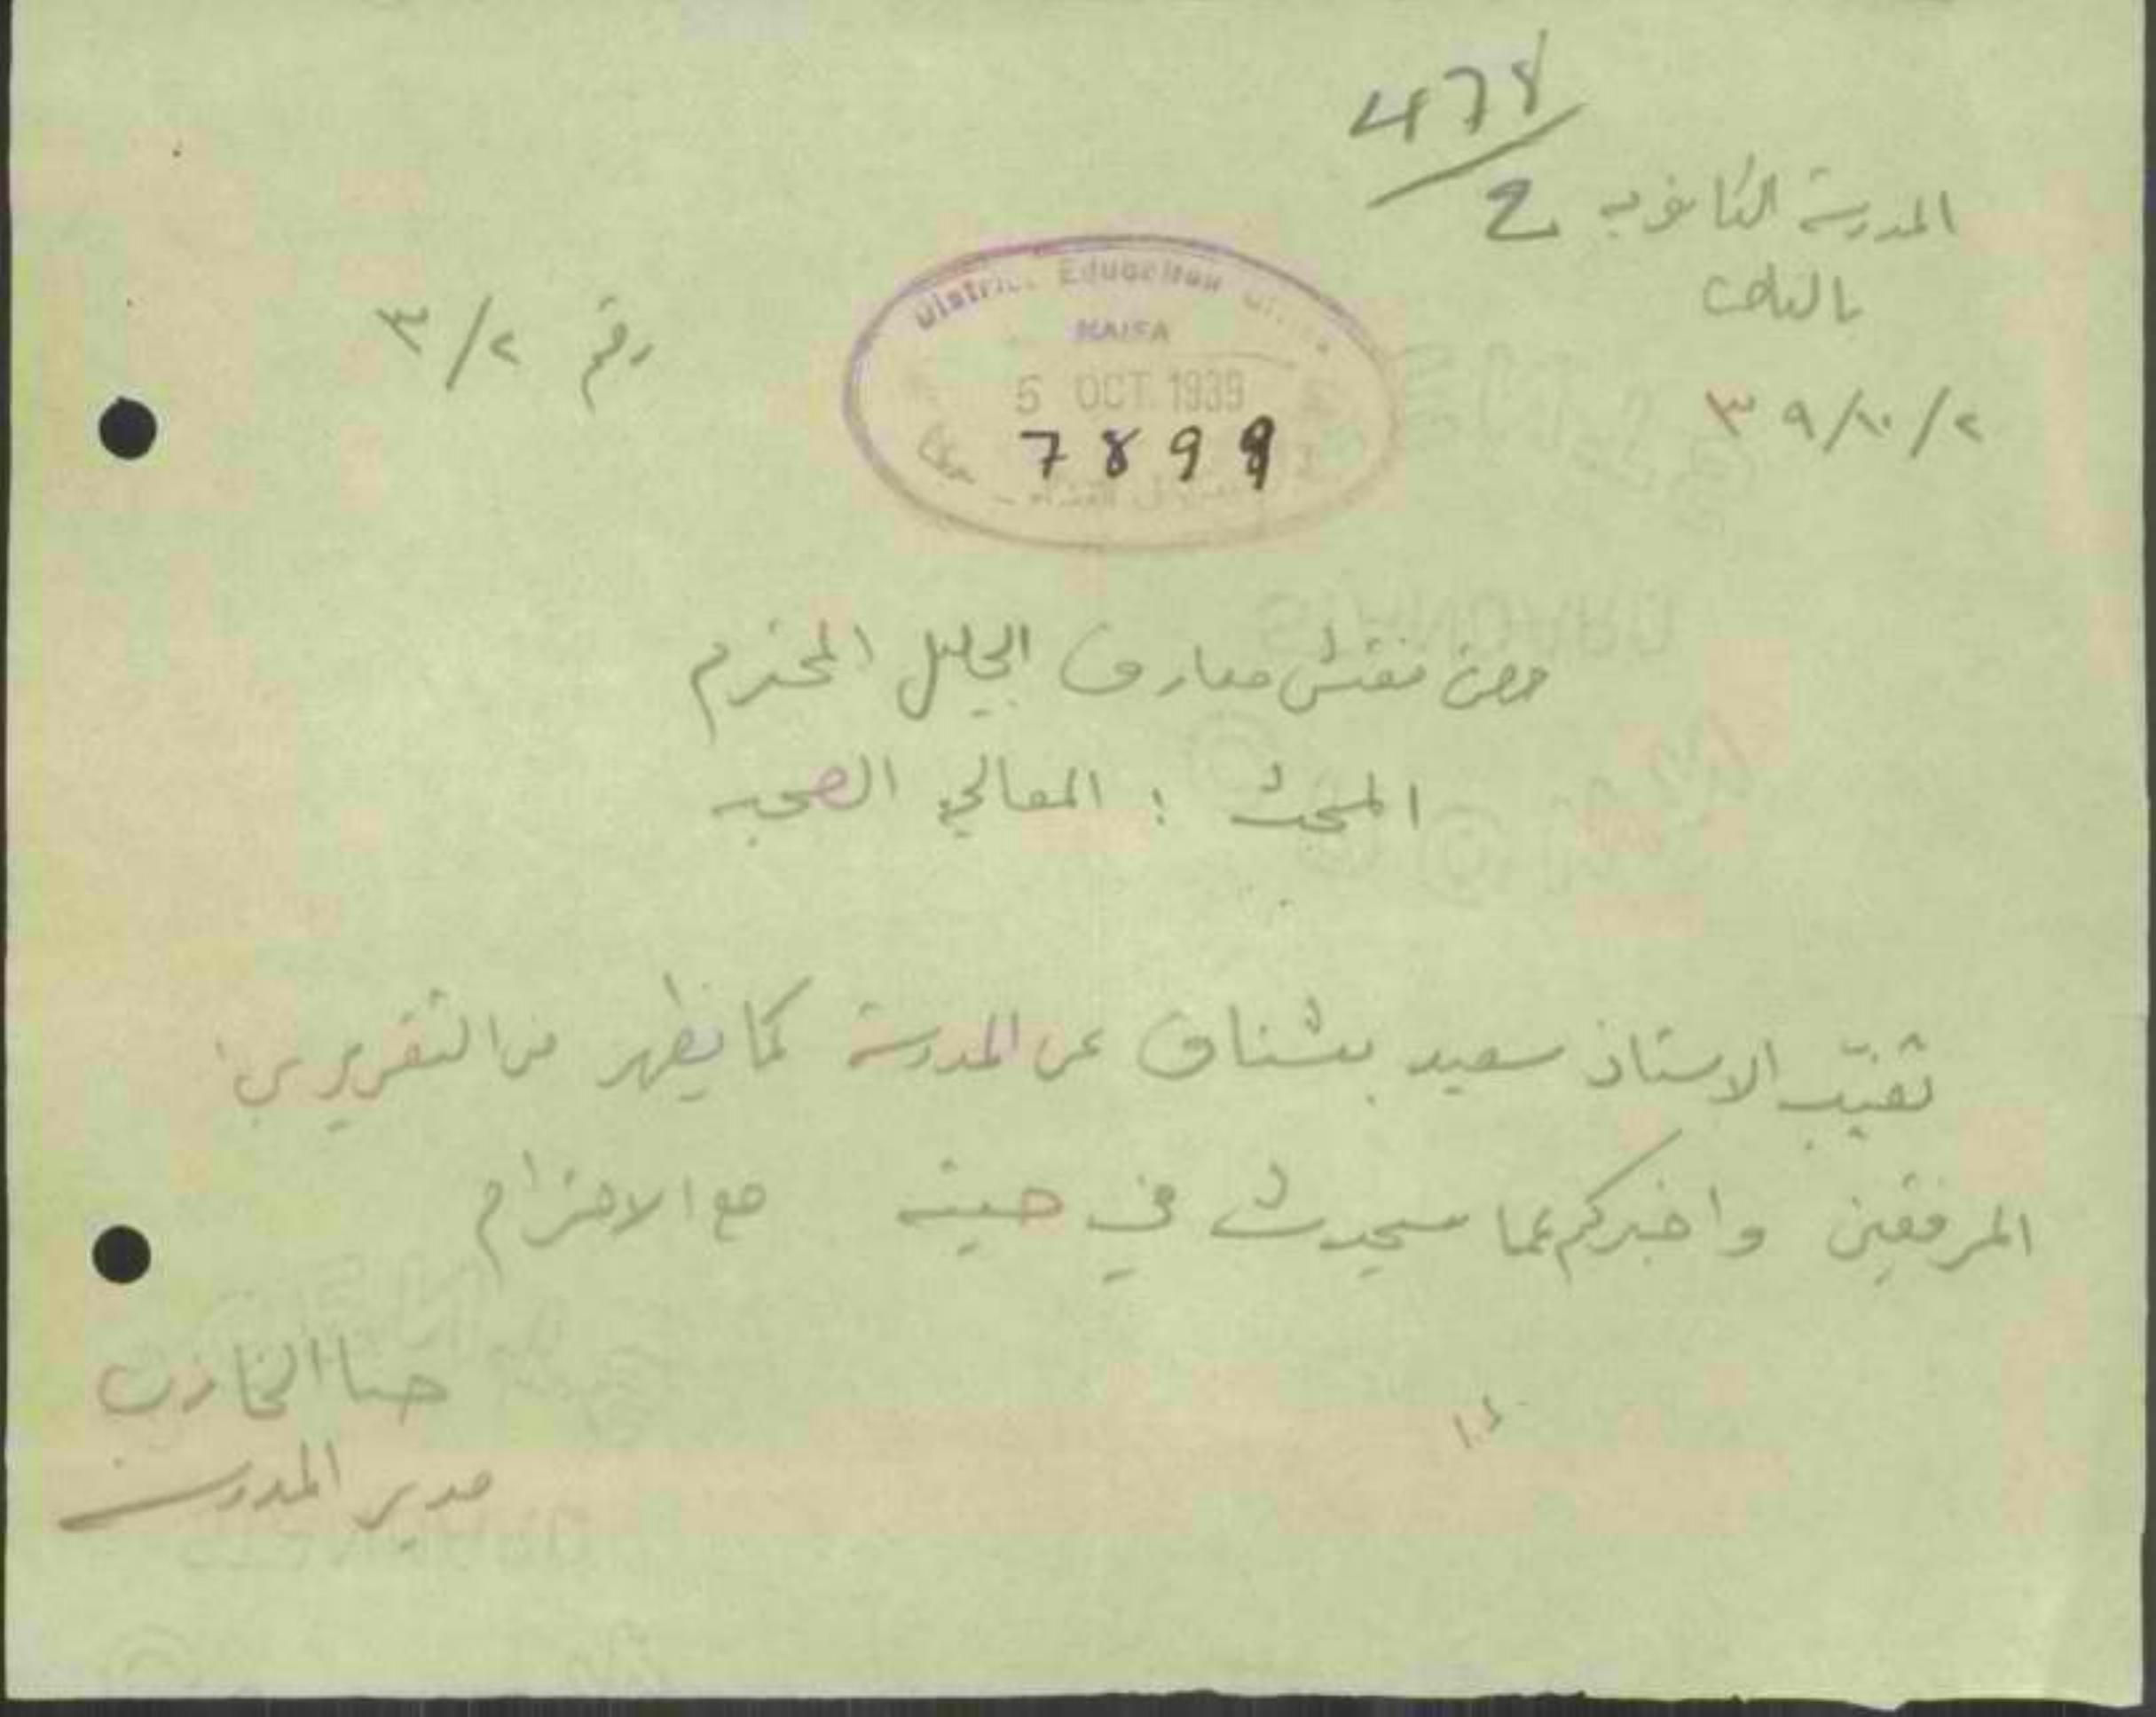 478/2
المدرسة الثانوية
بالناصرة
٣٩/١٠/٢
رقم ٣/٢
District Education Office
HAIFA
5 OCT 1939
7899
حضرة مفتش معارف الجليل المحترم
المبحث : المعالجة الصحية
تغيّب الاستاذ سعيد بشناق عن المدرسة كما يظهر من التقريرين
المرفقين واخبركم عما سيحدث في حينه مع الاحترام
حنا الخازن
مدير المدرسة